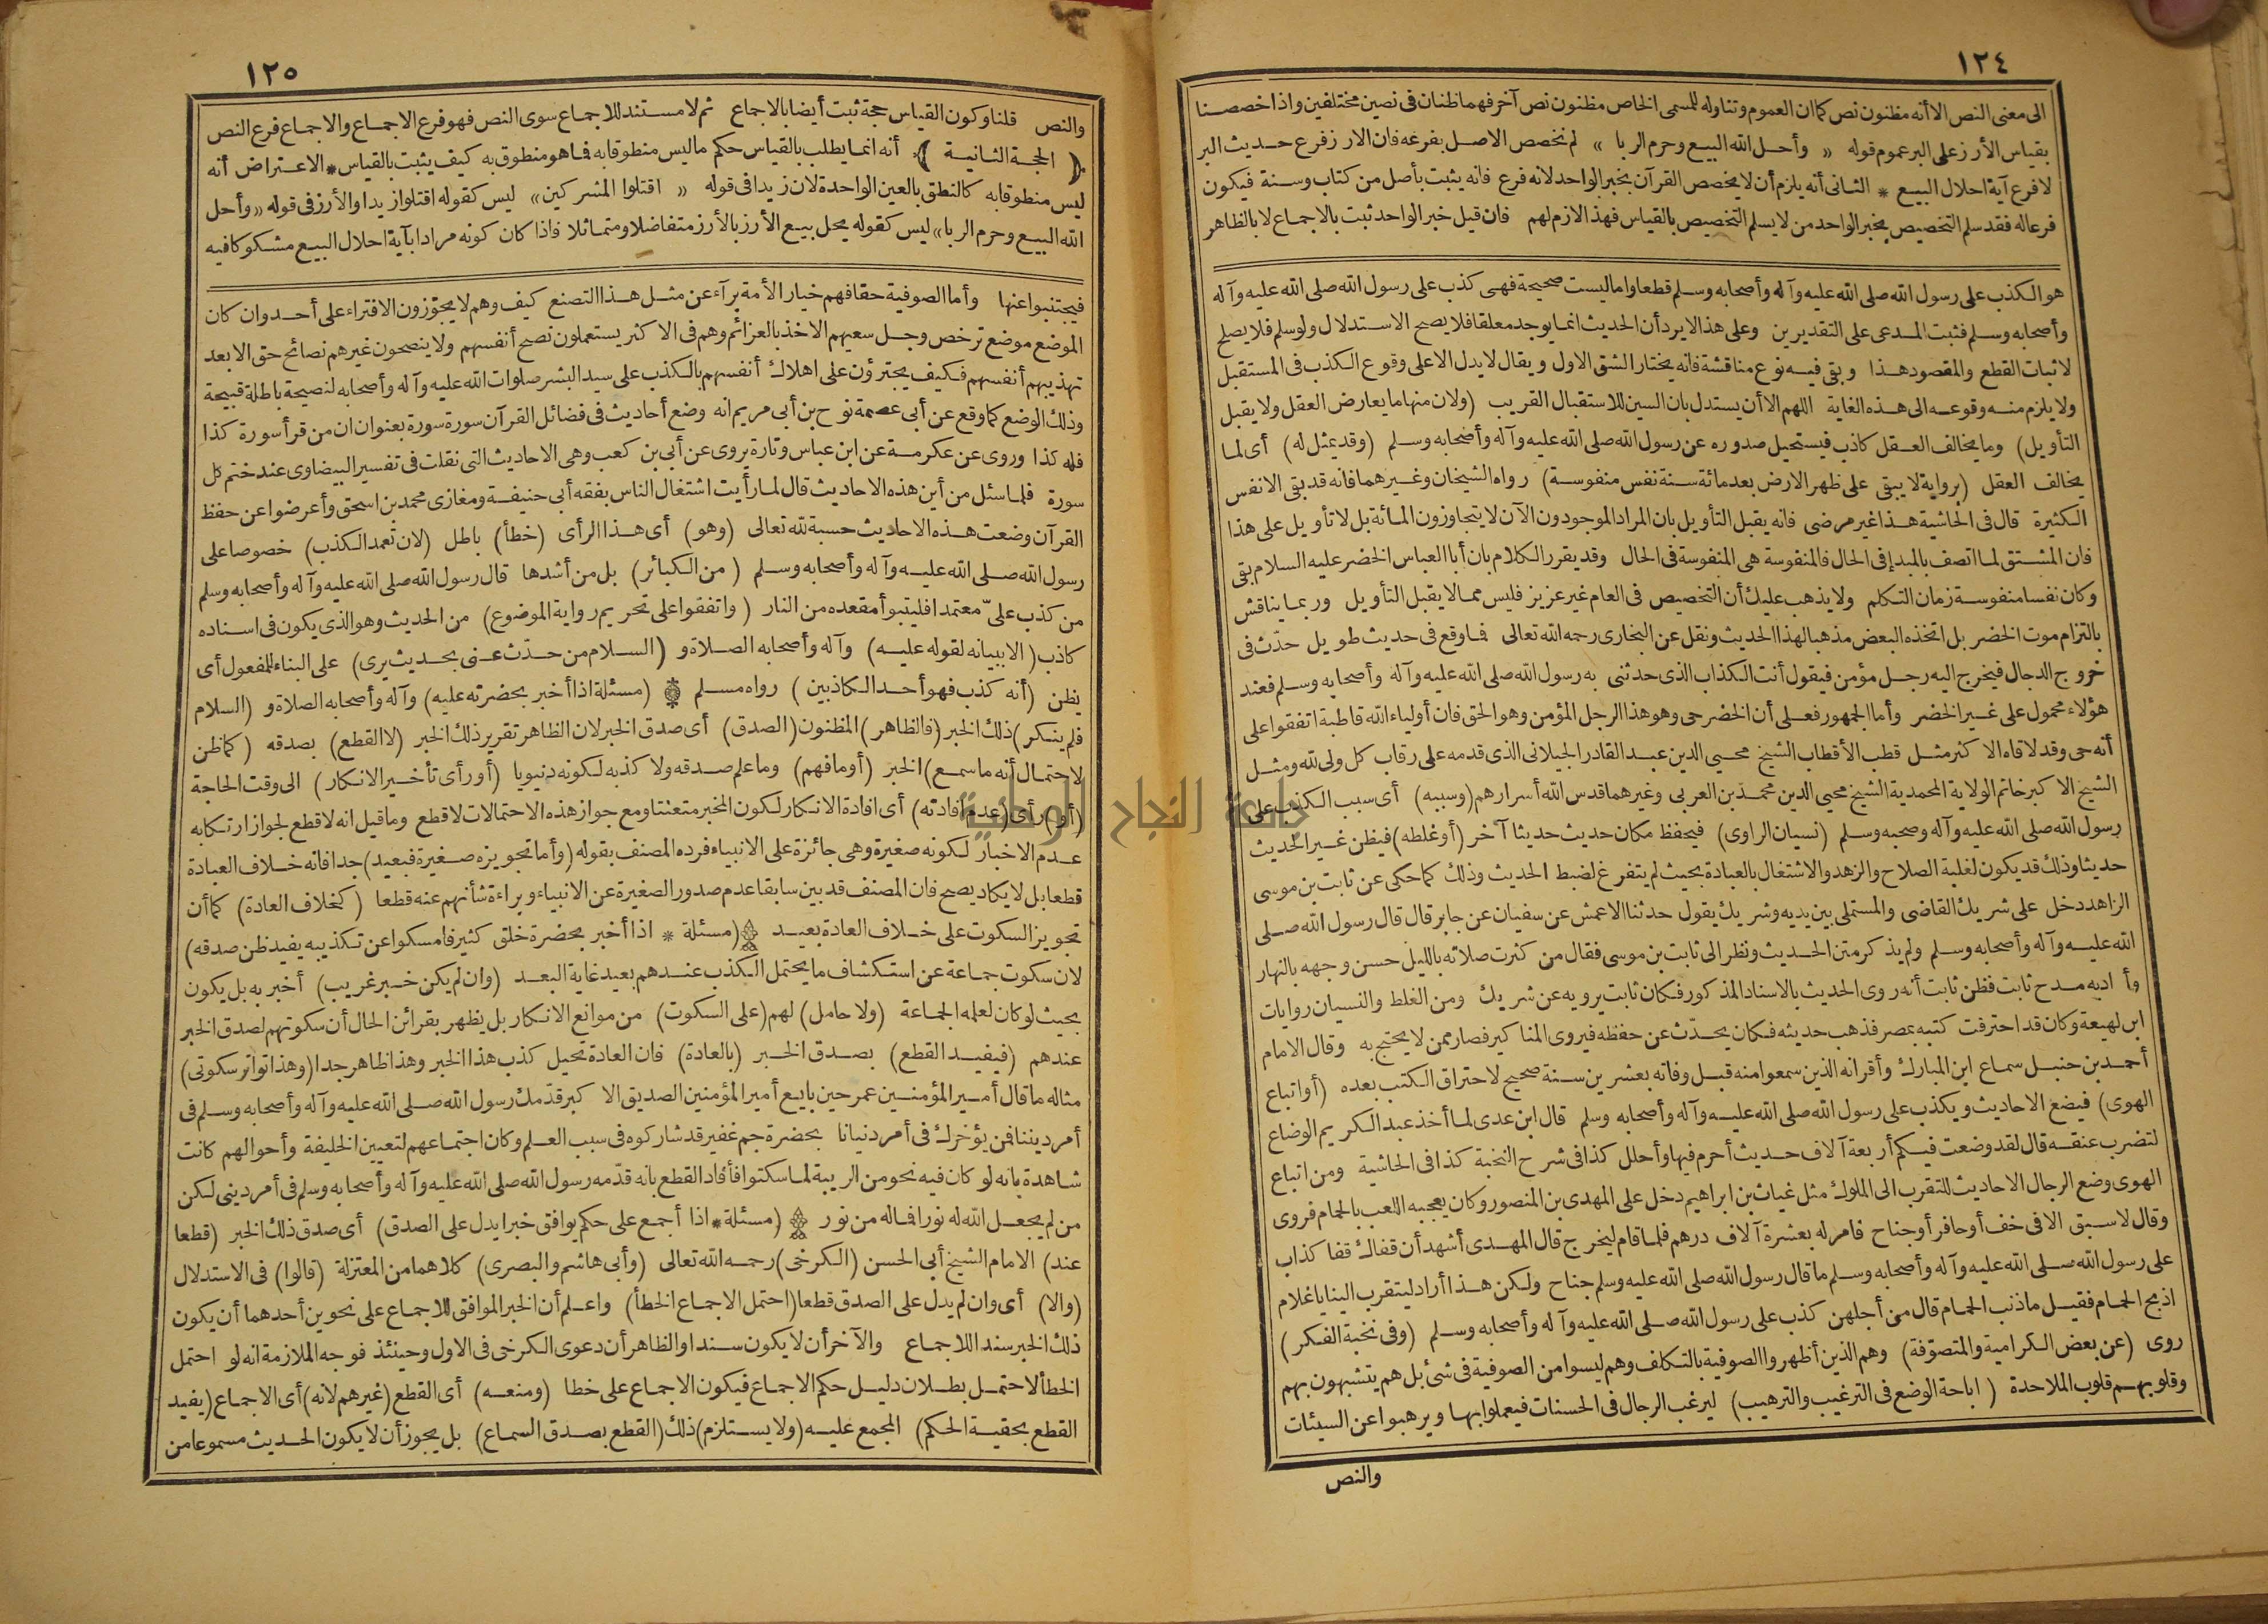 ١٢٤
الى معنى النص الا أنه مظنون نص كما ان العموم وتناوله للمسمى الخاص مظنون نص آخر فهما ظنان فى نصين مختلفين واذا خصصنا
بقياس الأرز على البر عموم قوله « وأحل الله البيع وحرم الربا » لم نخصص الاصل بفرعه فان الارز فرع حديث البر
لا فرع آية احلال البيع * الثانى أنه يلزم أن لا يخصص القرآن بخبر الواحد لانه فرع فانه يثبت بأصل من كتاب وسنة فيكون
فرعا له فقد سلم التخصيص بخبر الواحد من لا يسلم التخصيص بالقياس فهذا لازم لهم فان قيل خبر الواحد ثبت بالاجماع لا بالظاهر
هو الكذب على رسول الله صلى الله عليه وآله وأصحابه وسلم قطعا واما ليست صحيحة فهى كذب على رسول الله صلى الله عليه وآله
وأصحابه وسلم فثبت المدعى على التقديرين وعلى هذا لا يرد أن الحديث انما يوجد معلقا فلا يصح الاستدلال ولو سلم فلا يصلح
لاثبات القطع والمقصود هذا وبقى فيه نوع مناقشة فانه يختار الشق الاول ويقال لا يدل الا على وقوع الكذب فى المستقبل
ولا يلزم منه وقوعه الى هذه الغاية اللهم الا أن يستدل بان السين للاستقبال القريب (ولان منها ما يعارض العقل ولا يقبل
التأويل) وما يخالف العقل كاذب فيستحيل صدوره عن رسول الله صلى الله عليه وآله وأصحابه وسلم (وقد يمثل له) أى لما
يخالف العقل (برواية لا يبقى على ظهر الارض بعد مائة سنة نفس منفوسة) رواه الشيخان وغيرهما فانه قد بقى الانفس
الكثيرة قال فى الحاشية هذا غير مرضى فانه يقبل التأويل بان المراد الموجودون الآن لا يتجاوزون المائة بل لا تأويل على هذا
فان المشتق لما اتصف بالمبدإ فى الحال فالمنفوسة هى المنفوسة فى الحال وقد يقرر الكلام بان أبا العباس الخضر عليه السلام بقى
وكان نفسا منفوسة زمان التكلم ولا يذهب عليك أن التخصيص فى العام غير عزيز فليس مما لا يقبل التأويل وربما يناقش
بالتزام موت الخضر بل اتخذه البعض مذهبا لهذا الحديث ونقل عن البخارى رحمه الله تعالى فما وقع فى حديث طويل حدث فى
خروج الدجال فيخرج اليه رجل مؤمن فيقول أنت الكذاب الذى حدثنى به رسول الله صلى الله عليه وآله وأصحابه وسلم فعند
هؤلاء محمول على غير الخضر وأما الجمهور فعلى أن الخضر حى وهو هذا الرجل المؤمن وهو الحق فان أولياء الله قاطبة اتفقوا على
أنه حى وقد لاقاه الاكثر مثل قطب الأقطاب الشيخ محيى الدين عبد القادر الجيلانى الذى قدمه على رقاب كل ولى لله ومثل
الشيخ الاكبر خاتم الولاية المحمدية الشيخ محيى الدين محمد بن العربى وغيرهما قدس الله أسرارهم (وسببه) أى سبب الكذب على
رسول الله صلى الله عليه وآله وصحبه وسلم (نسيان الراوى) فيحفظ مكان حديث حديثا آخر (أو غلطه) فيظن غير الحديث
حديثا وذلك قد يكون لغلبة الصلاح والزهد والاشتغال بالعبادة بحيث لم يتفرغ لضبط الحديث وذلك كما حكى عن ثابت بن موسى
الزاهد دخل على شريك القاضى والمستملى بين يديه وشريك يقول حدثنا الاعمش عن سفيان عن جابر قال قال رسول الله صلى
الله عليه وآله وأصحابه وسلم ولم يذكر متن الحديث ونظر الى ثابت بن موسى فقال من كثرت صلاته بالليل حسن وجهه بالنهار
وأراد به مدح ثابت فظن ثابت أنه روى الحديث بالاسناد المذكور فكان ثابت يرويه عن شريك ومن الغلط والنسيان روايات
ابن لهيعة وكان قد احترقت كتبه بمصر فذهب حديثه فكان يحدث عن حفظه فيروى المناكير فصار ممن لا يحتج به وقال الامام
أحمد بن حنبل سماع ابن المبارك وأقرانه الذين سمعوا منه قبل وفاته بعشرين سنة صحيح لاحتراق الكتب بعده (أو اتباع
الهوى) فيضع الاحاديث ويكذب على رسول الله صلى الله عليه وآله وأصحابه وسلم قال ابن عدى لما أخذ عبد الكريم الوضاع
لتضرب عنقه قال لقد وضعت فيكم أربعة آلاف حديث أحرم فيها وأحلل كذا فى شرح النخبة كذا فى الحاشية ومن اتباع
الهوى وضع الرجال الاحاديث للتقرب الى الملوك مثل غياث بن ابراهيم دخل على المهدى بن المنصور وكان يعجبه اللعب بالحمام فروى
وقال لا سبق الا فى خف أو حافر أو جناح فامر له بعشرة آلاف درهم فلما قام ليخرج قال المهدى أشهد أن قفاك قفا كذاب
على رسول الله صلى الله عليه وآله وأصحابه وسلم ما قال رسول الله صلى الله عليه وسلم جناح ولكن هذا أراد ليتقرب الينا يا غلام
اذبح الحمام فقيل ما ذنب الحمام قال من أجلهن كذب على رسول الله صلى الله عليه وآله وأصحابه وسلم (وفى نخبة الفكر)
روى (عن بعض الكرامية والمتصوّفة) وهم الذين أظهروا الصوفية بالتكلف وهم ليسوا من الصوفية فى شئ بل هم يتشبهون بهم
وقلوبهم قلوب الملاحدة (اباحة الوضع فى الترغيب والترهيب) ليرغب الرجال فى الحسنات فيعملوا بها ويرهبوا عن السيئات
والنص
١٢٥
والنص قلنا وكون القياس حجة ثبت أيضا بالاجماع ثم لا مستند للاجماع سوى النص فهو فرع الاجماع والاجماع فرع النص
﴿ الحجة الثانية ﴾ أنه انما يطلب بالقياس حكم ما ليس منطوقا به فما هو منطوق به كيف يثبت بالقياس * الاعتراض أنه
ليس منطوقا به كالنطق بالعين الواحدة لان زيدا فى قوله « اقتلوا المشركين » ليس كقوله اقتلوا زيدا والأرز فى قوله « وأحل
الله البيع وحرم الربا » ليس كقوله يحل بيع الأرز بالأرز متفاضلا ومتماثلا فاذا كان كونه مرادا بآية احلال البيع مشكوكا فيه
فيجتنبوا عنها وأما الصوفية حقا فهم خيار الأمة برآء عن مثل هذا التصنع كيف وهم لا يجوّزون الافتراء على أحد وان كان
الموضع موضع ترخص وجل سعيهم الاخذ بالعزائم وهم فى الاكثر يستعملون نصح أنفسهم ولا ينصحون غيرهم نصائح حق الا بعد
تهذيبهم أنفسهم فكيف يجترؤن على اهلاك أنفسهم بالكذب على سيد البشر صلوات الله عليه وآله وأصحابه لنصيحة باطلة قبيحة
وذلك الوضع كما وقع عن أبى عصمة نوح بن أبى مريم انه وضع أحاديث فى فضائل القرآن سورة سورة بعنوان ان من قرأ سورة كذا
فله كذا وروى عن عكرمة عن ابن عباس وتارة يروى عن أبى بن كعب وهى الاحاديث التى نقلت فى تفسير البيضاوى عند ختم كل
سورة فلما سئل من أين هذه الاحاديث قال لما رأيت اشتغال الناس بفقه أبى حنيفة ومغازى محمد بن اسحق وأعرضوا عن حفظ
القرآن وضعت هذه الاحاديث حسبة لله تعالى (وهو) أى هذا الرأى (خطأ) باطل (لان تعمد الكذب) خصوصا على
رسول الله صلى الله عليه وآله وأصحابه وسلم (من الكبائر) بل من أشدها قال رسول الله صلى الله عليه وآله وأصحابه وسلم
من كذب علىّ معتمدا فليتبوأ مقعده من النار (واتفقوا على تحريم رواية الموضوع) من الحديث وهو الذى يكون فى اسناده
كاذب (الا ببيانه لقوله عليه) وآله وأصحابه الصلاة و (السلام من حدّث عنى بحديث يرى) على البناء للمفعول أى
يظن (أنه كذب فهو أحد الكاذبين) رواه مسلم (مسئلة اذا أخبر بحضرته عليه) وآله وأصحابه الصلاة و (السلام
فلم ينكر) ذلك الخبر (فالظاهر) المظنون (الصدق) أى صدق الخبر لان الظاهر تقرير ذلك الخبر (لا القطع) بصدقه (كما ظن
لاحتمال أنه ما سمع) الخبر (أو ما فهم) وما علم صدقه ولا كذبه لكونه دنيويا (أو رأى تأخير الانكار) الى وقت الحاجة
(أو) رأى (عدم افادته) أى افادة الانكار لكون المخبر متعنتا ومع جواز هذه الاحتمالات لا قطع وما قيل انه لا قطع لجواز ارتكابه
عدم الاخبار لكونه صغيرة وهى جائزة على الانبياء فرده المصنف بقوله (وأما تجويزه صغيرة فبعيد) جدا فانه خلاف العبادة
قطعا بل لا يكاد يصح فان المصنف قد بين سابقا عدم صدور الصغيرة عن الانبياء وبراءة شأنهم عنه قطعا (كخلاف العادة) كما أن
تجويز السكوت على خلاف العادة بعيد (مسئلة * اذا أخبر بحضرة خلق كثير فامسكوا عن تكذيبه يفيد ظن صدقه)
لان سكوت جماعة عن استكشاف ما يحتمل الكذب عندهم بعيد غاية البعد (وان لم يكن خبر غريب) أخبر به بل يكون
بحيث لو كان لعلمه الجماعة (ولا حامل) لهم (على السكوت) من موانع الانكار بل يظهر بقرائن الحال أن سكوتهم لصدق الخبر
عندهم (فيفيد القطع) بصدق الخبر (بالعادة) فان العادة تحيل كذب هذا الخبر وهذا ظاهر جدا (وهذا تواتر سكوتى)
مثاله ما قال أمير المؤمنين عمر حين بايع أمير المؤمنين الصديق الاكبر قدّمك رسول الله صلى الله عليه وآله وأصحابه وسلم فى
أمر ديننا فمن يؤخرك فى أمر دنيانا بحضرة جم غفير قد شاركوه فى سبب العلم وكان اجتماعهم لتعيين الخليفة وأحوالهم كانت
شاهدة بانه لو كان فيه نحو من الريبة لما سكتوا فأفاد القطع بانه قدّمه رسول الله صلى الله عليه وآله وأصحابه وسلم فى أمر دينى لكن
من لم يجعل الله له نورا فما له من نور (مسئلة * اذا أجمع على حكم يوافق خبرا يدل على الصدق) أى صدق ذلك الخبر (قطعا
عند) الامام الشيخ أبى الحسن (الكرخى) رحمه الله تعالى (وأبى هاشم والبصرى) كلاهما من المعتزلة (قالوا) فى الاستدلال
(والا) أى وان لم يدل على الصدق قطعا (احتمل الاجماع الخطأ) واعلم أن الخبر الموافق للاجماع على نحوين أحدهما أن يكون
ذلك الخبر سندا للاجماع والآخر أن لا يكون سندا والظاهر أن دعوى الكرخى فى الاول وحينئذ فوجه الملازمة انه لو احتمل
الخطأ لاحتمل بطلان دليل حكم الاجماع فيكون الاجماع على خطا (ومنعه) أى القطع (غيرهم لانه) أى الاجماع (يفيد
القطع بحقية الحكم) المجمع عليه (ولا يستلزم) ذلك (القطع بصدق السماع) بل يجوز أن لا يكون الحديث مسموعا من
جامعة النجاح الوطنية